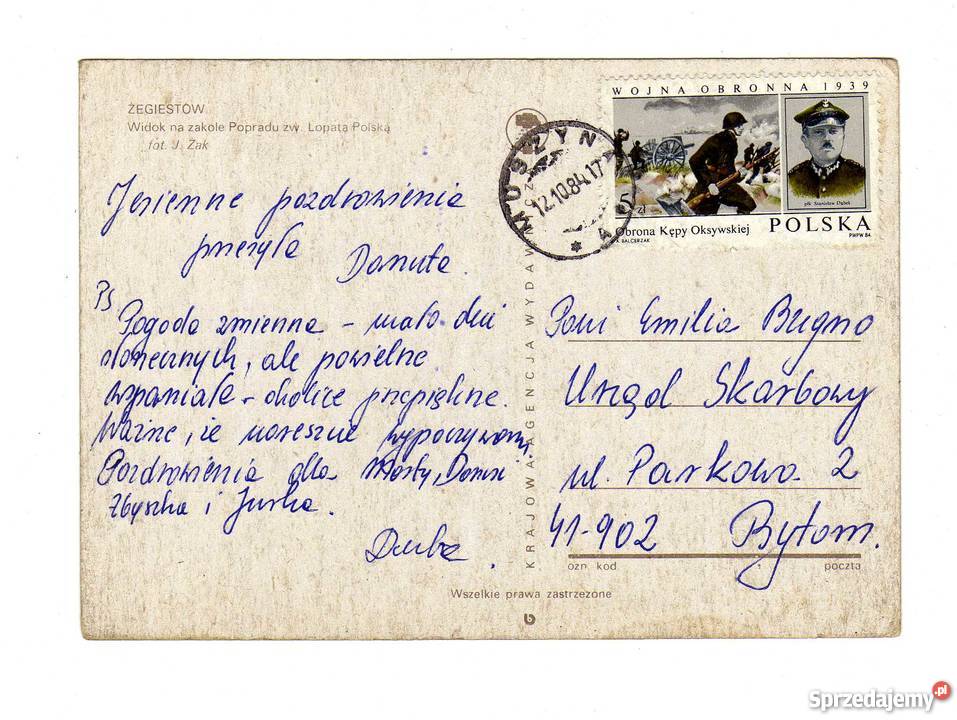 ŻEGIESTÓW
Widok na zakole Popradu zw. Łopata Polska
fot. J. Żak
Jesienne pozdrowienia
przesyła Danuta.
PS
Pogoda zmienna – mało dni
słonecznych, ale powietrze
wspaniałe – okolice przepiękne.
Ważne, że nareszcie wypoczywam.
Pozdrowienia dla Marty, Danusi
Zbyszka i Jurka.
WOJNA OBRONNA 1939
5 zł
płk Stanisław Dąbek
Obrona Kępy Oksywskiej
POLSKA
BALCERZAK
PWPW 84
MUSZYNA
12.10.84.17
A
KRAJOWA AGENCJA WYDAW
Pani Emilia Bugno
Urząd Skarbowy
ul. Parkowa 2
41-902 Bytom.
ozn kod
poczta
Wszelkie prawa zastrzeżone
6
Sprzedajemy.pl